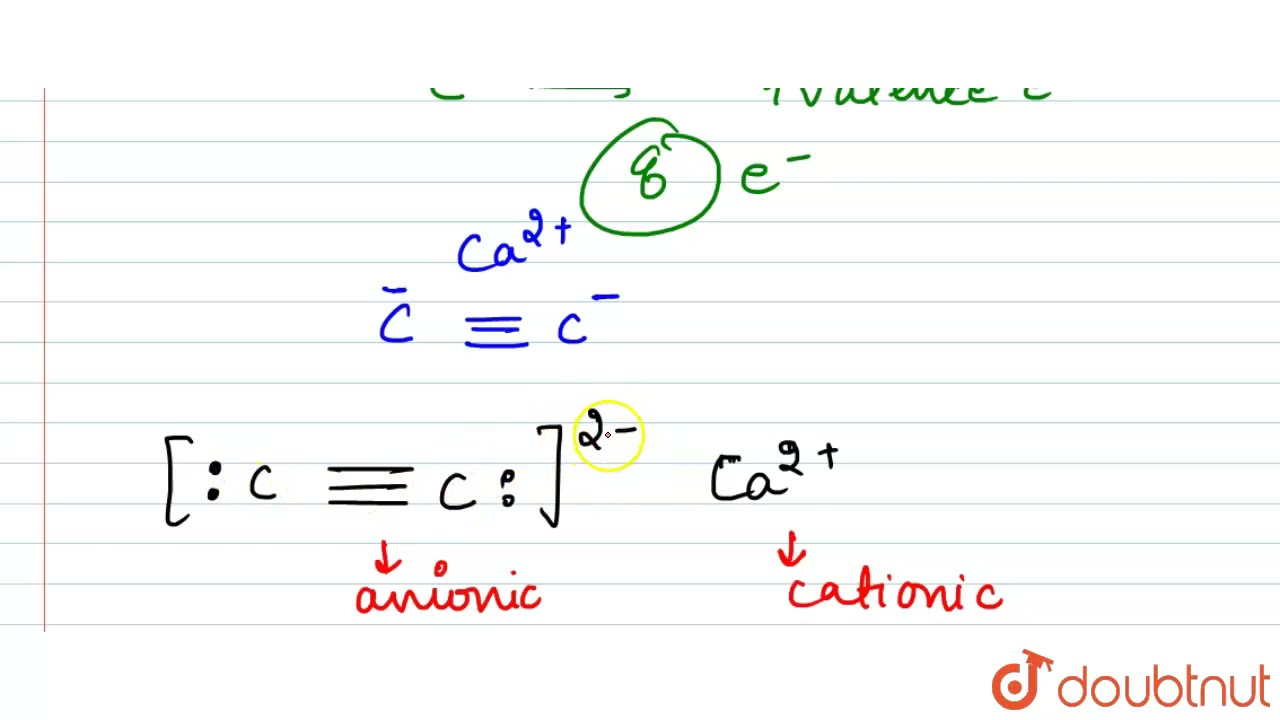 4 valence e
8 e⁻
Ca²⁺
C̄ ≡ c⁻
[:C ≡ C:]²⁻ Ca²⁺
↓ ↓
anionic cationic
doubtnut